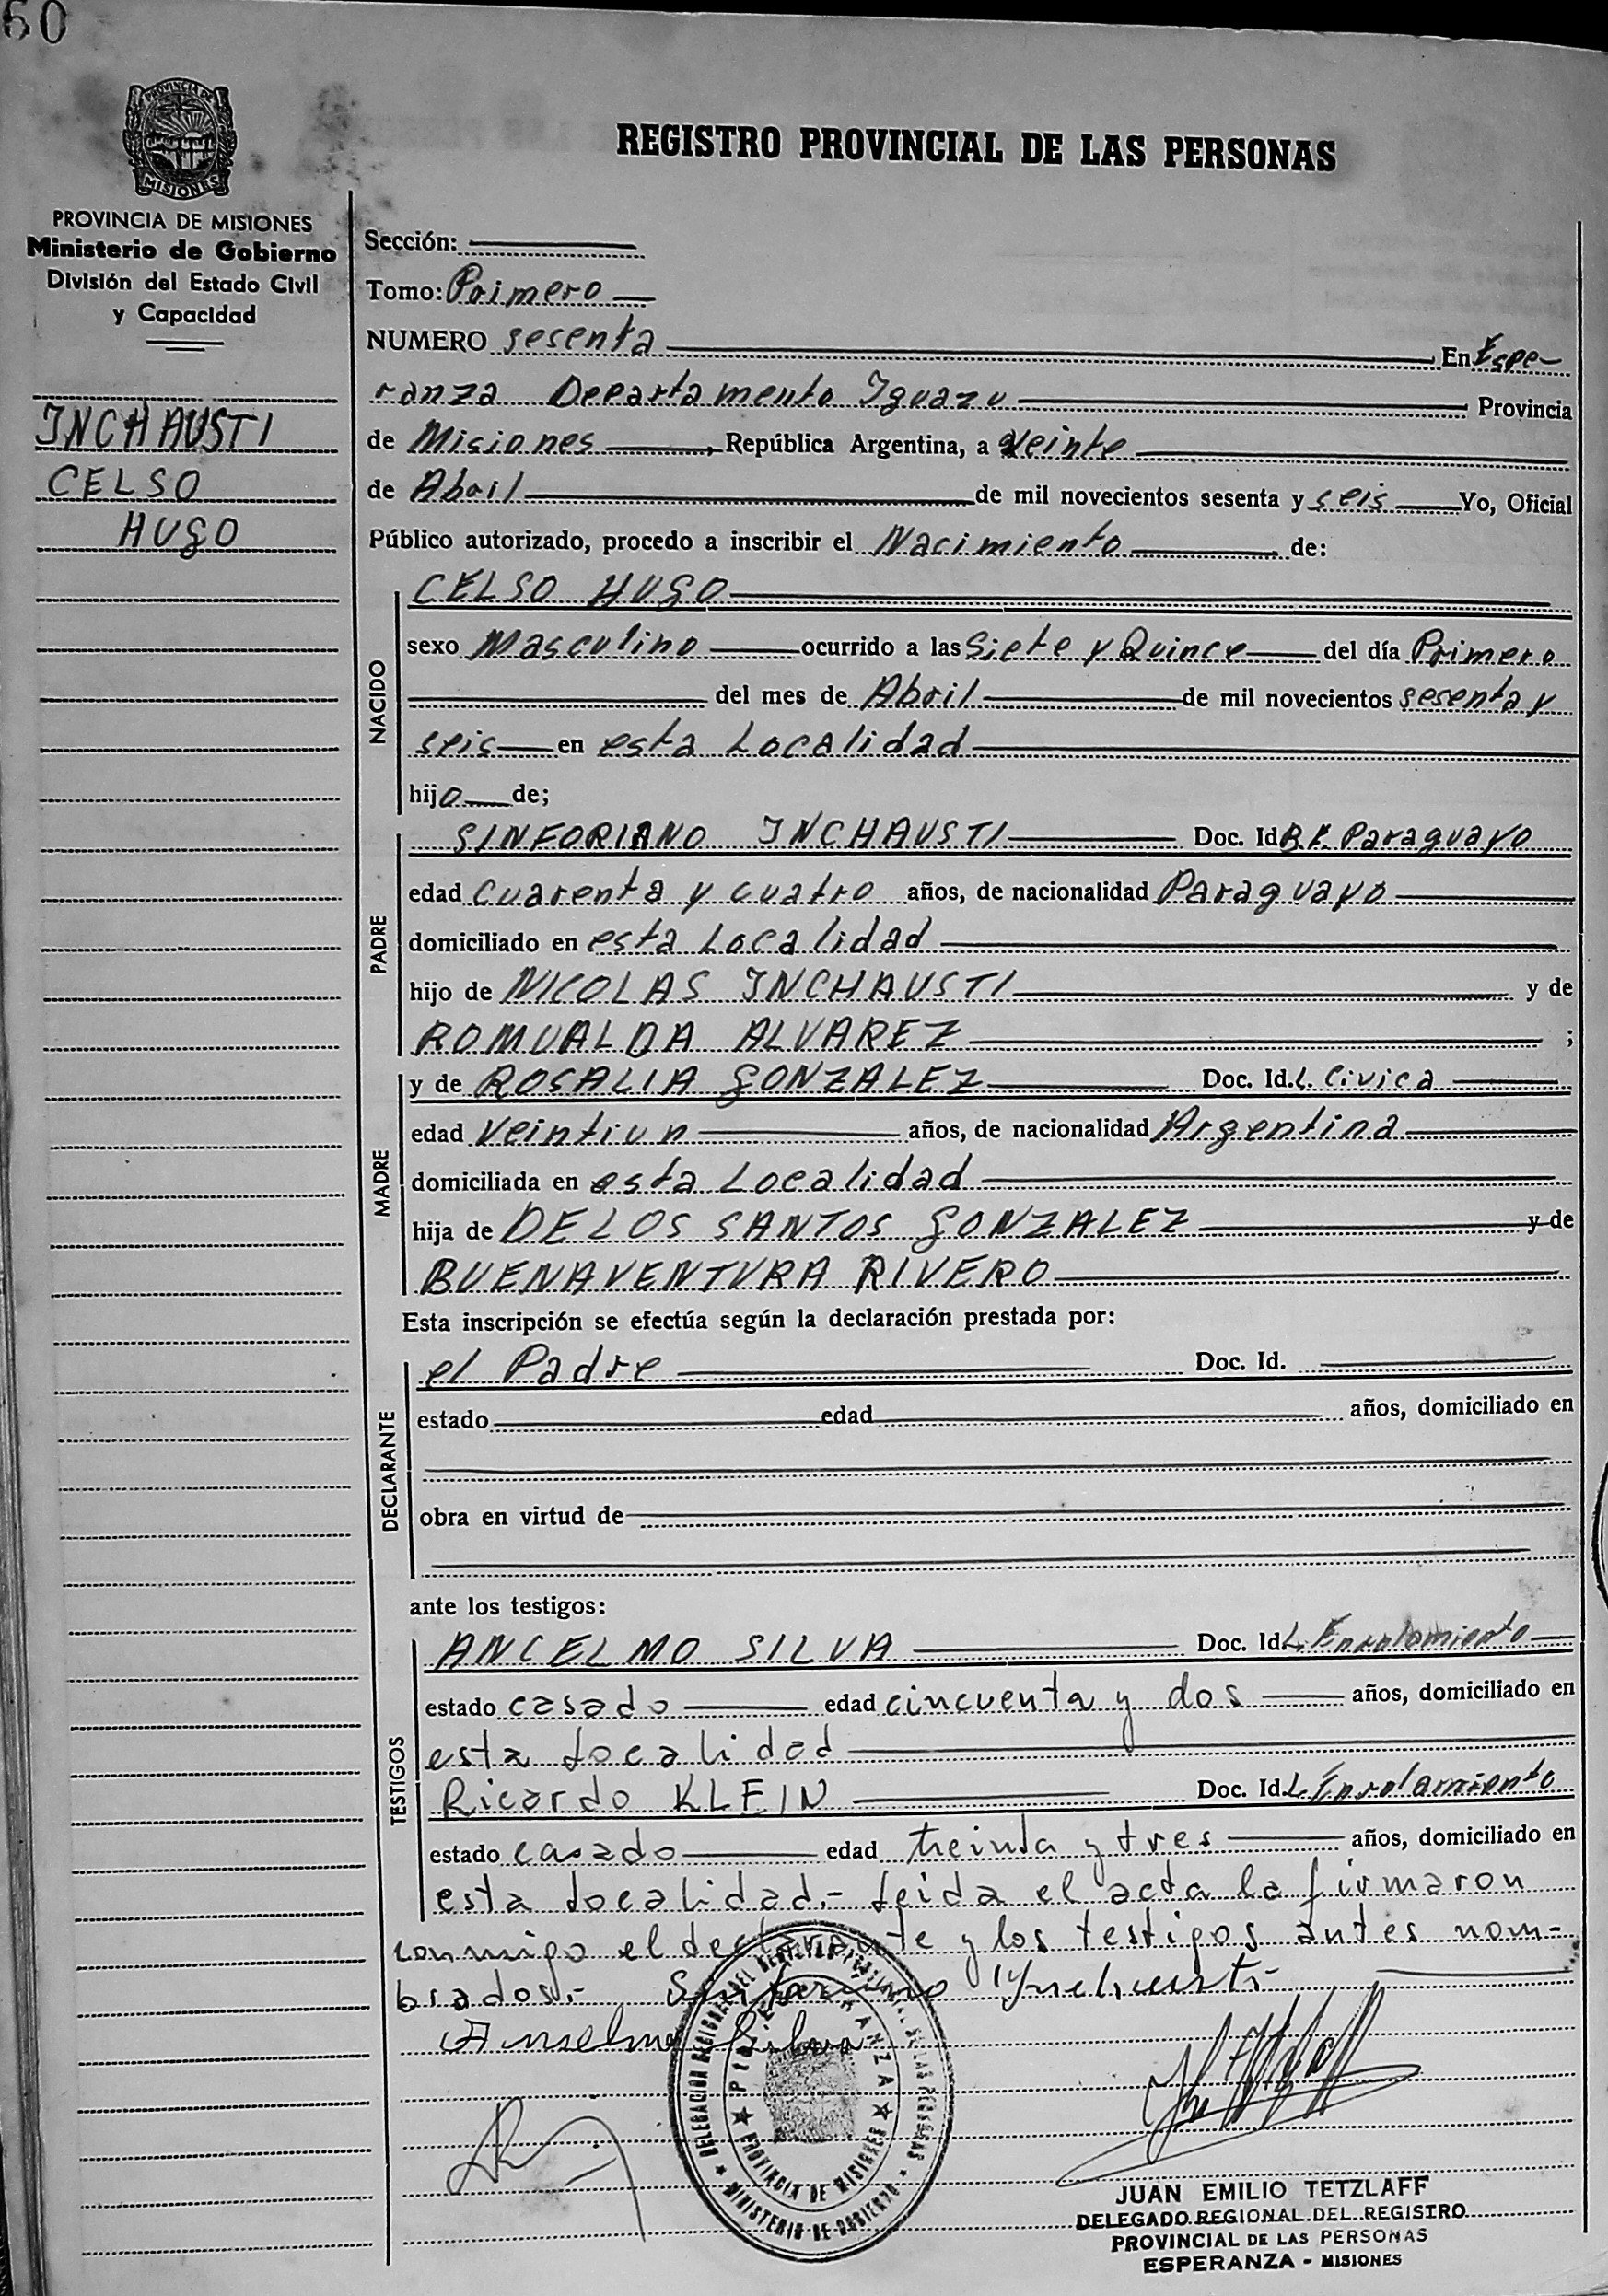 60
PROVINCIA DE
MISIONES
REGISTRO PROVINCIAL DE LAS PERSONAS
PROVINCIA DE MISIONES
Ministerio de Gobierno
División del Estado Civil
y Capacidad
INCHAUSTI
CELSO
HUGO
Sección:
Tomo: Primero
NUMERO sesenta En Espe-
ranza Departamento Iguazu Provincia
de Misiones, República Argentina, a veinte
de Abril de mil novecientos sesenta y seis Yo, Oficial
Público autorizado, procedo a inscribir el Nacimiento de:
NACIDO
CELSO HUGO
sexo Masculino ocurrido a las Siete y Quince del día Primero
del mes de Abril de mil novecientos sesenta y
seis en esta Localidad
hijo de;
PADRE
SINFORIANO INCHAUSTI Doc. Id. Paraguayo
edad cuarenta y cuatro años, de nacionalidad Paraguayo
domiciliado en esta Localidad
hijo de NICOLAS INCHAUSTI y de
ROMUALDA ALVAREZ ;
MADRE
y de ROSALIA GONZALEZ Doc. Id. L. Civica
edad Veintiun años, de nacionalidad Argentina
domiciliada en esta Localidad
hija de DE LOS SANTOS GONZALEZ y de
BUENAVENTURA RIVERO
Esta inscripción se efectúa según la declaración prestada por:
DECLARANTE
el Padre Doc. Id.
estado edad años, domiciliado en
obra en virtud de
ante los testigos:
TESTIGOS
ANCELMO SILVA Doc. Id. L. Enrolamiento
estado casado edad cincuenta y dos años, domiciliado en
esta localidad
Ricardo KLEIN Doc. Id. L. Enrolamiento
estado casado edad treinta y tres años, domiciliado en
esta localidad.- leida el acta la firmaron
conmigo el declarante y los testigos antes nom-
brados.- Sinforiano Ynchausti
Anselmo Silva
DELEGACION REGIONAL DEL REGISTRO PROVINCIAL DE LAS PERSONAS
MINISTERIO DE GOBIERNO
Pto. ESPERANZA
PROVINCIA DE MISIONES
JUAN EMILIO TETZLAFF
DELEGADO REGIONAL DEL REGISTRO
PROVINCIAL DE LAS PERSONAS
ESPERANZA - MISIONES